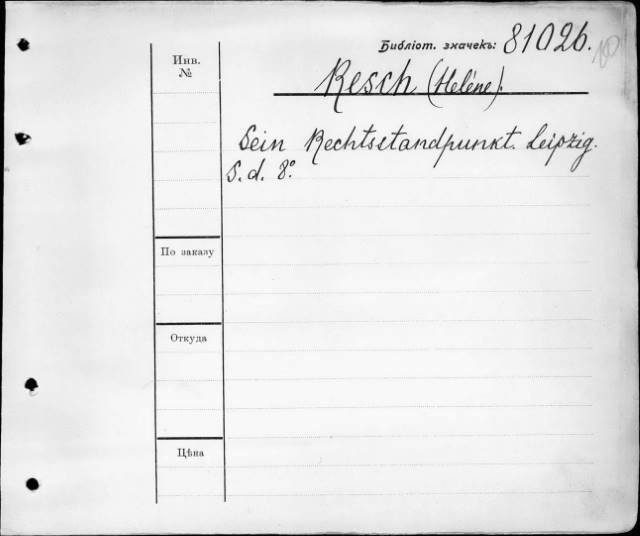 Библіот. значекъ: 81026.
Инв.
№
Resch (Helène).
Sein Rechtsstandpunkt. Leipzig.
S. d. 8º.
По заказу
Откуда
Цѣна